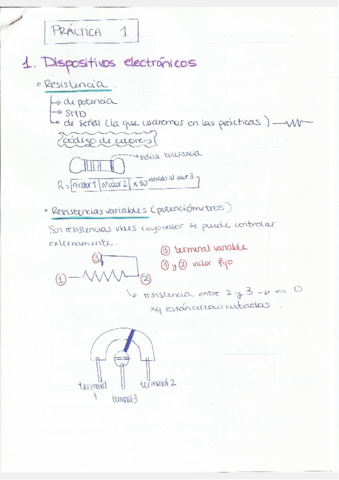 PRÁCTICA 1
1. Dispositivos electrónicos
• Resistencia.
de potencia
SMD
de señal (la que usaremos en las prácticas)
código de colores
indica tolerancia
R = valor 1 valor 2 x 10 elevado al valor 3
• Resistencias variables (potenciómetros)
Son resistencias cuyo valor se puede controlar
externamente.
③ terminal variable
① y ② valor fijo
③
① ②
resistencia entre 2 y 3 → = 0
xq están cortocircuitadas.
terminal 1
terminal 3
terminal 2